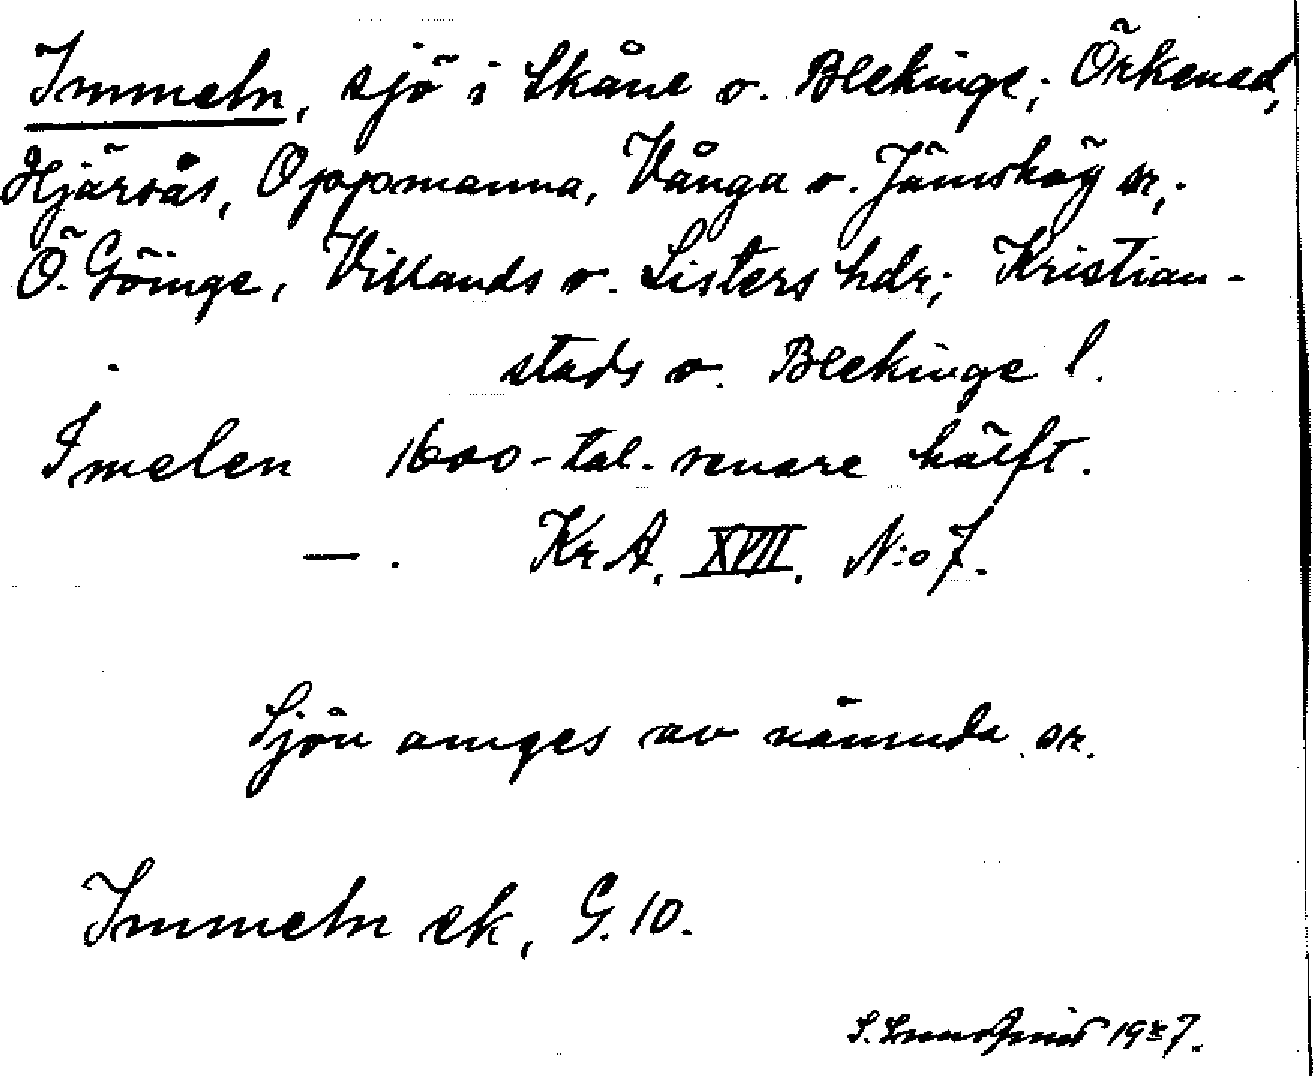 Immeln, sjö i Skåne o. Blekinge; Örkened,
Hjärsås, Oppmanna, Vånga o. Jämshög sr,;
Ö. Göinge, Villands o. Listers hdr; Kristian-
stads o. Blekinge l.
Imelen 1600-tal. senare hälft.
—. KrA. XVII. N:o 7.
Sjön omges av nämnda sr.
Immeln ek, G. 10.
S. 1927.